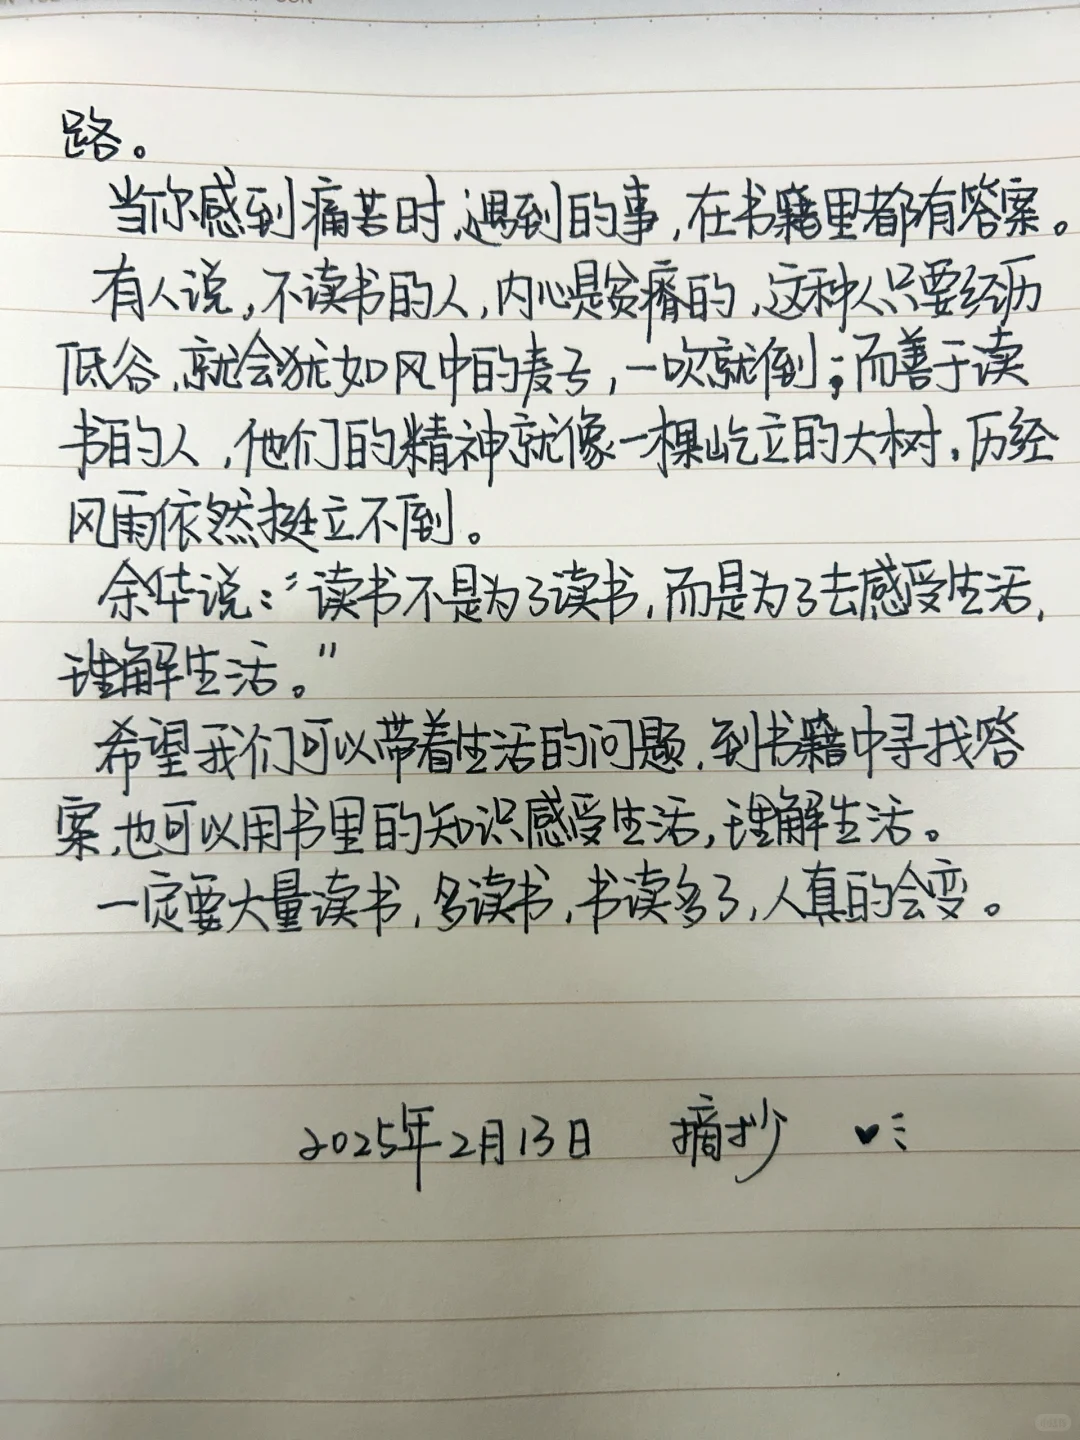 路。
当你感到痛苦时，遇到的事，在书籍里都有答案。
有人说，不读书的人，内心是贫瘠的，这种人只要经历
低谷，就会犹如风中的麦子，一吹就倒；而善于读
书的人，他们的精神就像一棵屹立的大树，历经
风雨依然挺立不倒。
余华说：“读书不是为了读书，而是为了去感受生活，
理解生活。”
希望我们可以带着生活的问题，到书籍中寻找答
案，也可以用书里的知识感受生活，理解生活。
一定要大量读书，多读书，书读多了，人真的会变。
2025年2月13日 摘抄